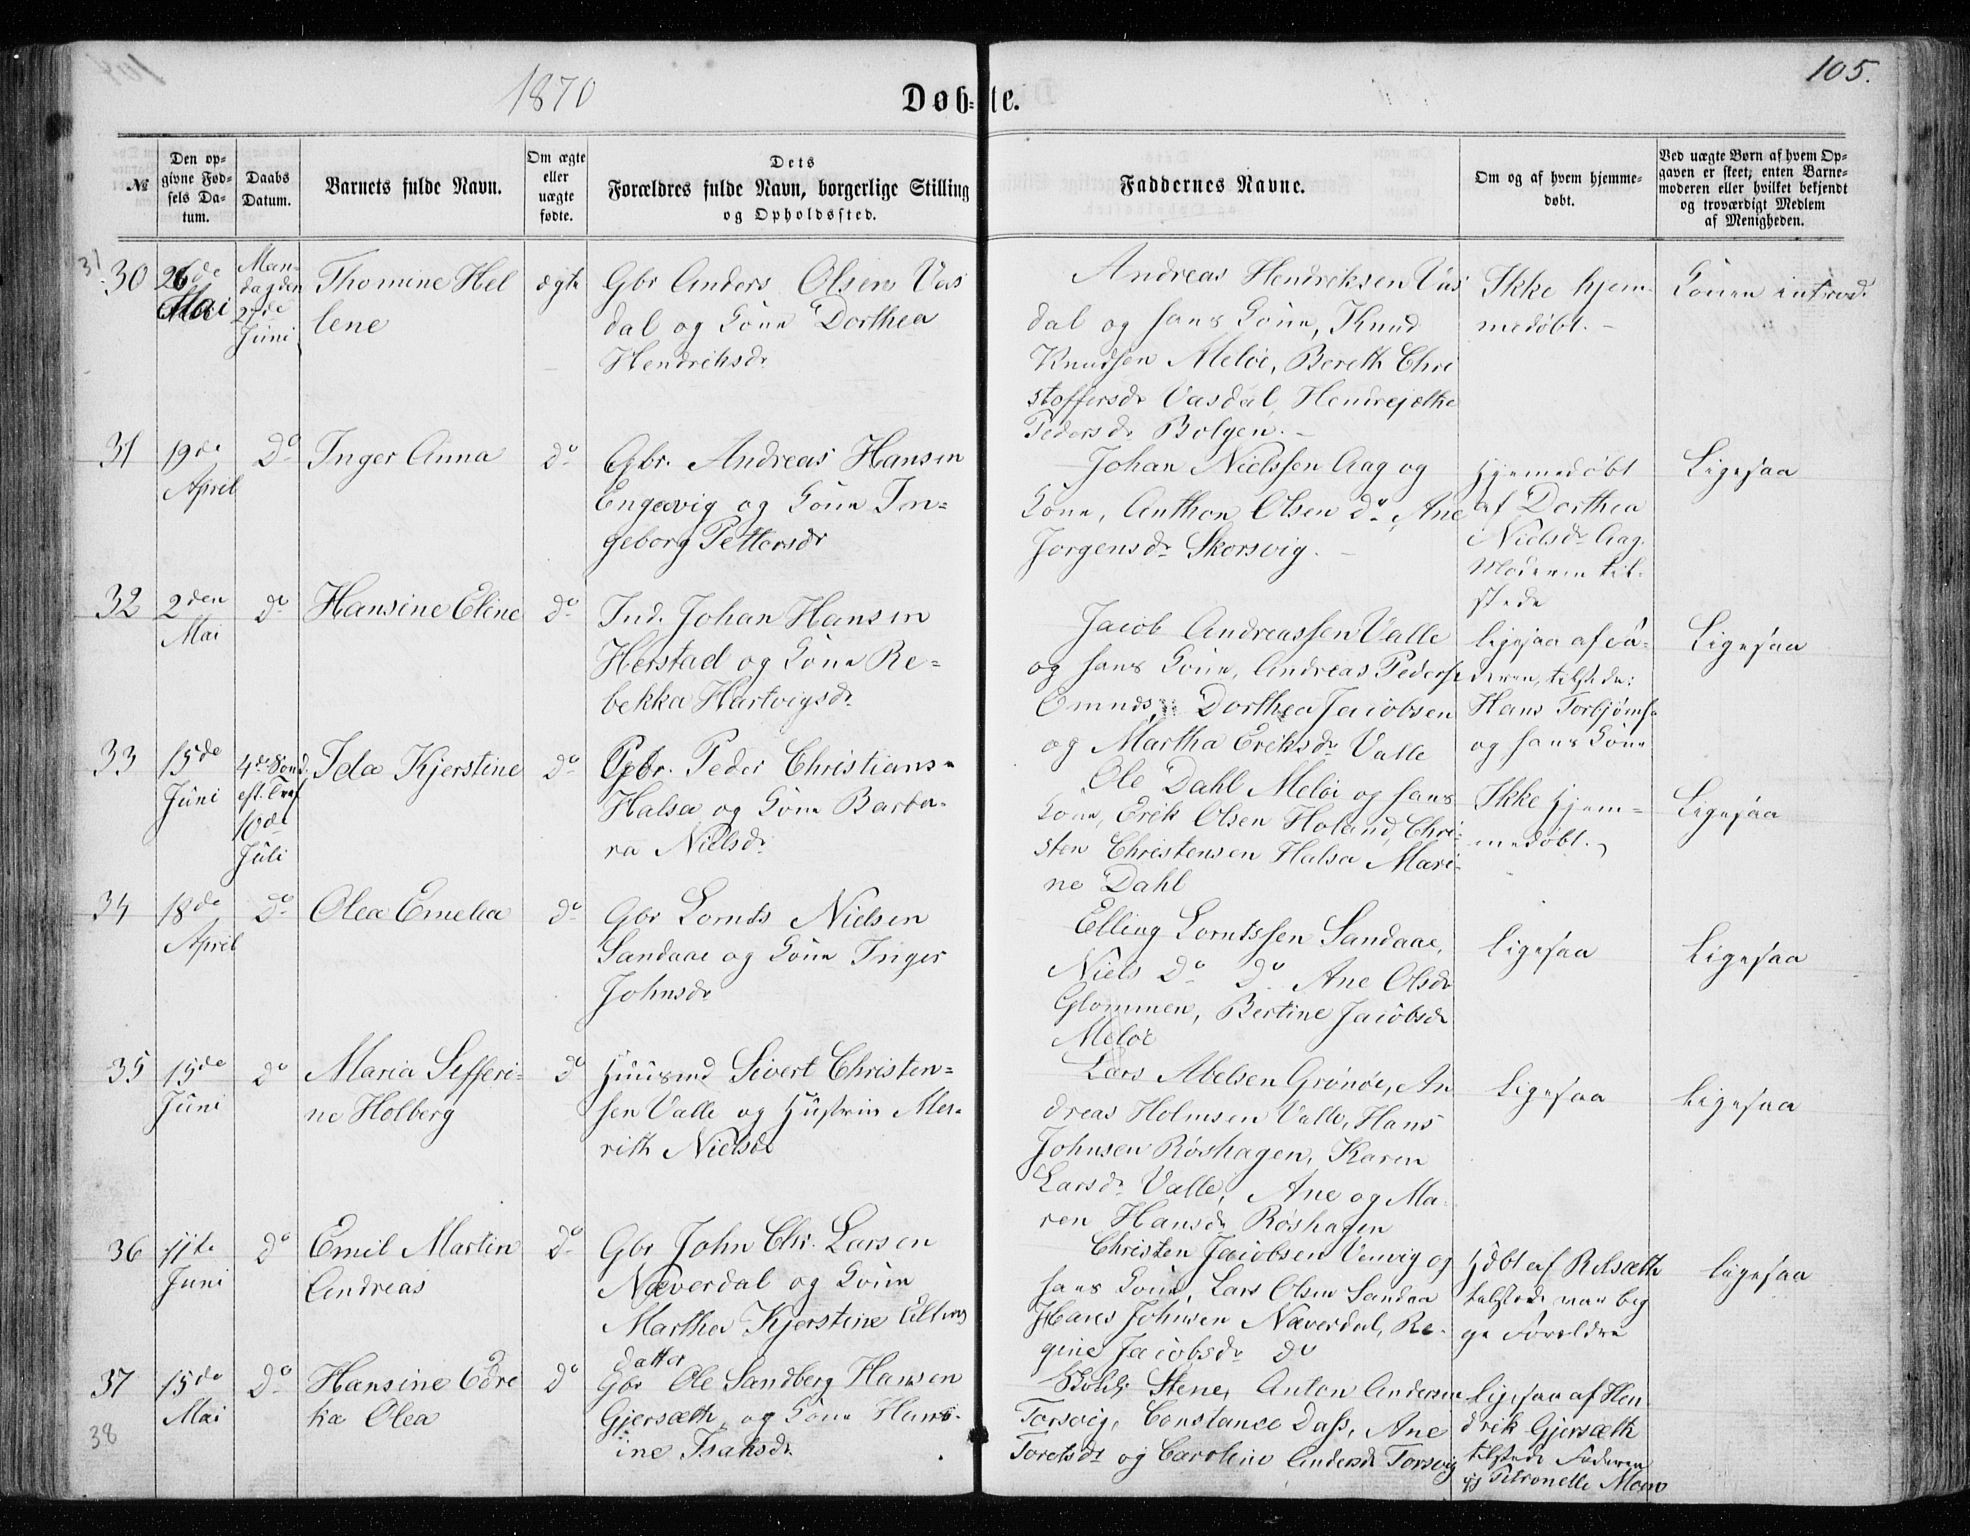 1870
Døb=te.
105.
№
Den op=
givne Fød=
sels Da=
tum.
Daabs
Datum.
Barnets fulde Navn.
Om ægte
eller
uægte
fødte.
Dets
Forældres fulde Navn, borgerlige Stilling
og Opholdssted.
Faddernes Navne.
Om og af hvem hjemme=
døbt.
Ved uægte Børn af hvem Op=
gaven er skeet; enten Barne=
moderen eller hvilket bekjendt
og troværdigt Medlem
af Menigheden.
31
30
26de
Mai
Man=
dag den
27de
Juni
Thomine Hel
lene
ægte
Gbr Anders Olsen Vas
dal og Kone Dorthea
Hendriksdr
Andreas Hendriksen Vas
dal og hans Kone, Knud
Knudsen Meløe, Bereth Chri
stoffersdr Vasdal, Hendrejethe
Pedersdr Bolgen.–
Ikke hjem=
medøbt.–
Konen introd.
31
19de
April
Do
Inger Anna
do
Gbr. Andreas Hansen
Engavig og Kone In=
geborg Pettersdr
Johan Nielssen Aag og
Kone, Anthon Olsen do, Ane
Jørgensdr Skorsvig.–
Hjemmedøbt
af Dorthea
Nielsdr Aag.
Moderen til=
stede
Ligesaa
32
2den
Mai
do
Hansine Eline
do
Ind. Johan Hansen
Herstad og Kone Re=
bekka Hartvigsdr
Jacob Andreassen Valle
og hans Kone, Andreas Peders
Dorthea Jacobsen
og Martha Eriksdr Valle
ligesaa af Fa=
deren, tilstede:
Hans Torbjørns
og hans Kone
Ligesaa
33
15de
Juni
4de Sønd.
eft. Tref
10de
Juli
Ida Kjerstine
do
Gbr. Peder Christians=
Halsa og Kone Barba=
ra Nielsdr
Ole Dahl Meløe og hans
Kone, Erik Olsen Holand, Chri=
sten Christensen Halsa Mari=
ne Dahl
Ikke Hjem=
medøbt.
Ligesaa
34
18de
April
Do
Olea Emelia
do
Gbr Lornts Nielsen
Sandaae og Kone Inger
Johnsdr
Elling Lorntssen Sandaae,
Niels Do Do. Ane Olsdr
Glommen, Bertine Jacobsdr
Meløe
Ligesaa
Ligesaa
35
15de
Juni
do
Maria Sefferi=
ne Holberg
do
Huusmd Sivert Christen=
sen Valle og Hustrue Me=
rith Nielsdr
Lars Abelsen Grønøe, An
dreas Holmsen Valle, Hans
Johnsen Røshagen, Karen
Larsdr Valle, Ane og Ma=
ren Hansdr Røshagen
Ligesaa
Ligesaa
36
11te
Juni
do
Emil Martin
Andreas
do
Gbr John Chr. Larsen
Næverdal og Kone
Martha Kjerstine Ellings
datter
Christen Jacobsen Venvig og
hans Kone, Lars Olsen Sandaa
Hans Johnsen Næverdal, Re=
gine Jacobsdr do
Hdøbt af Relsæth
tilstede var beg
ge Forældre
ligesaa
37
15de
Mai
Do
Hansine Edve
Olea
do
Gbr Ole Sandberg Hansen
Gjersæth, og Kone Hans=
ine Isaksdr
Stene, Anton Andersen
Torsvig, Constance Dass, Ane
Toretsdr og Caroline Andersdr Torsvig
Ligesaa af Hen
drik Gjersæth
tilstede Faderen
og Petronelle
38